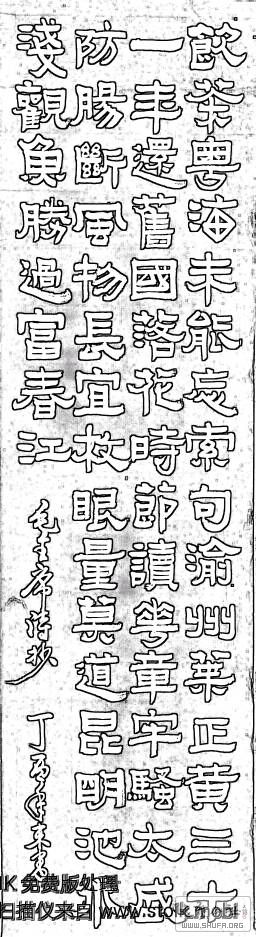 飲茶粵海未能忘索句渝州葉正黃三十
一年還舊國落花時節讀華章牢騷太盛
防腸斷風物長宜放眼量莫道昆明池水
淺觀魚勝過富春江
毛主席詩抄
IK 免费版处理
扫描仪来自 www.stolk.mobi
WWW.SHUFA.ORG